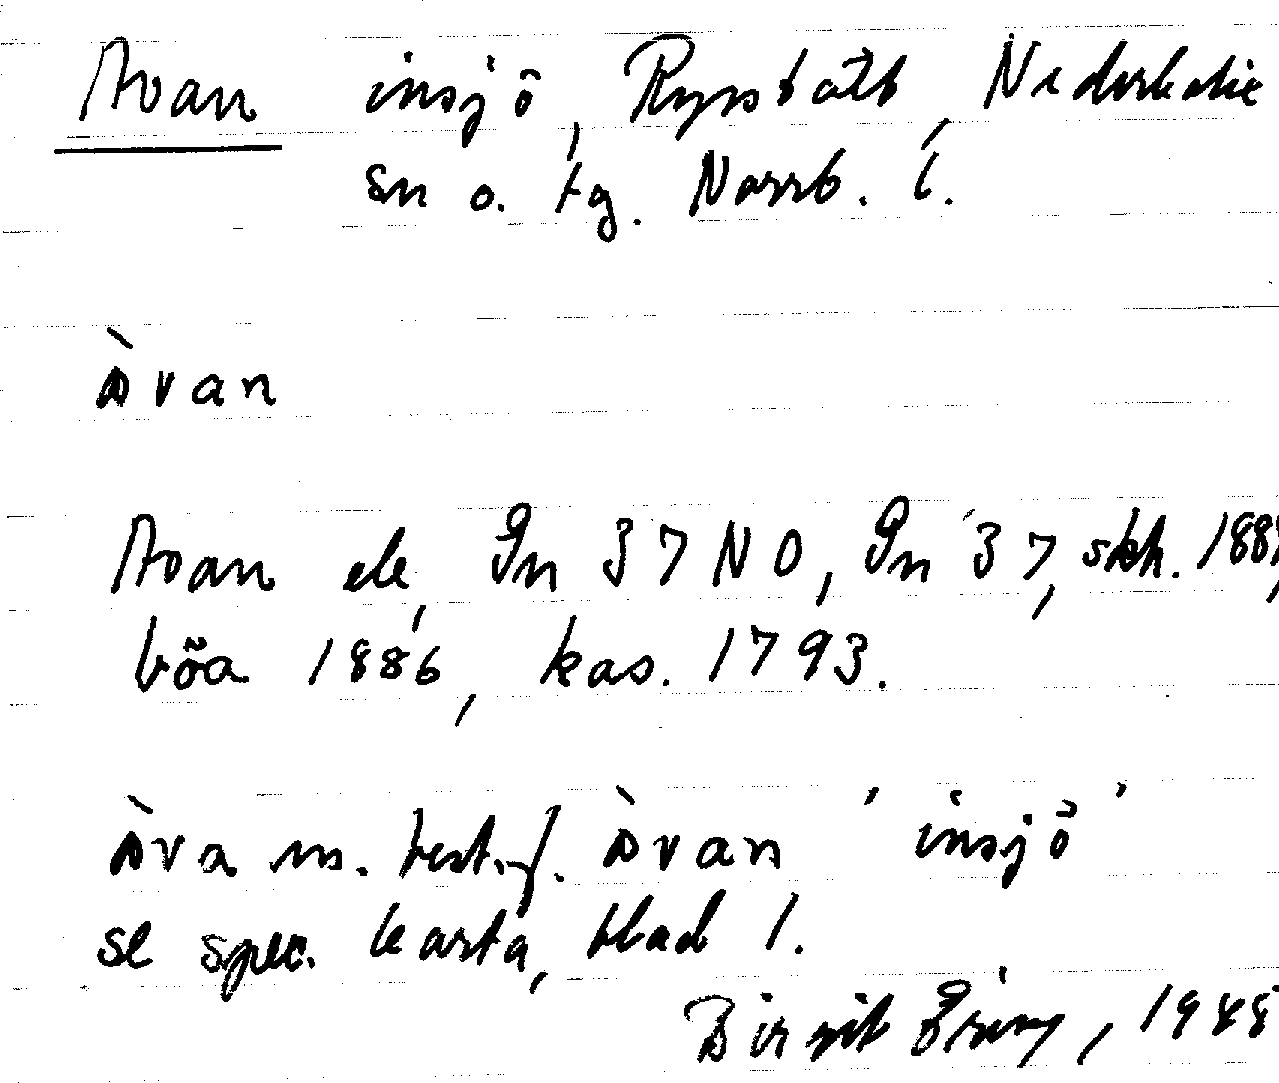 Avan insjö, Rysbält, Nederkalix
sn o. tg. Norrb. l.
àvan
Avan ele, Gn 37 NO, Gn 37, skh. 188
böa 1886, kas. 1793.
àva m. best. f. àvan 'insjö'
se spec. karta, blad 1.
Birgit 194